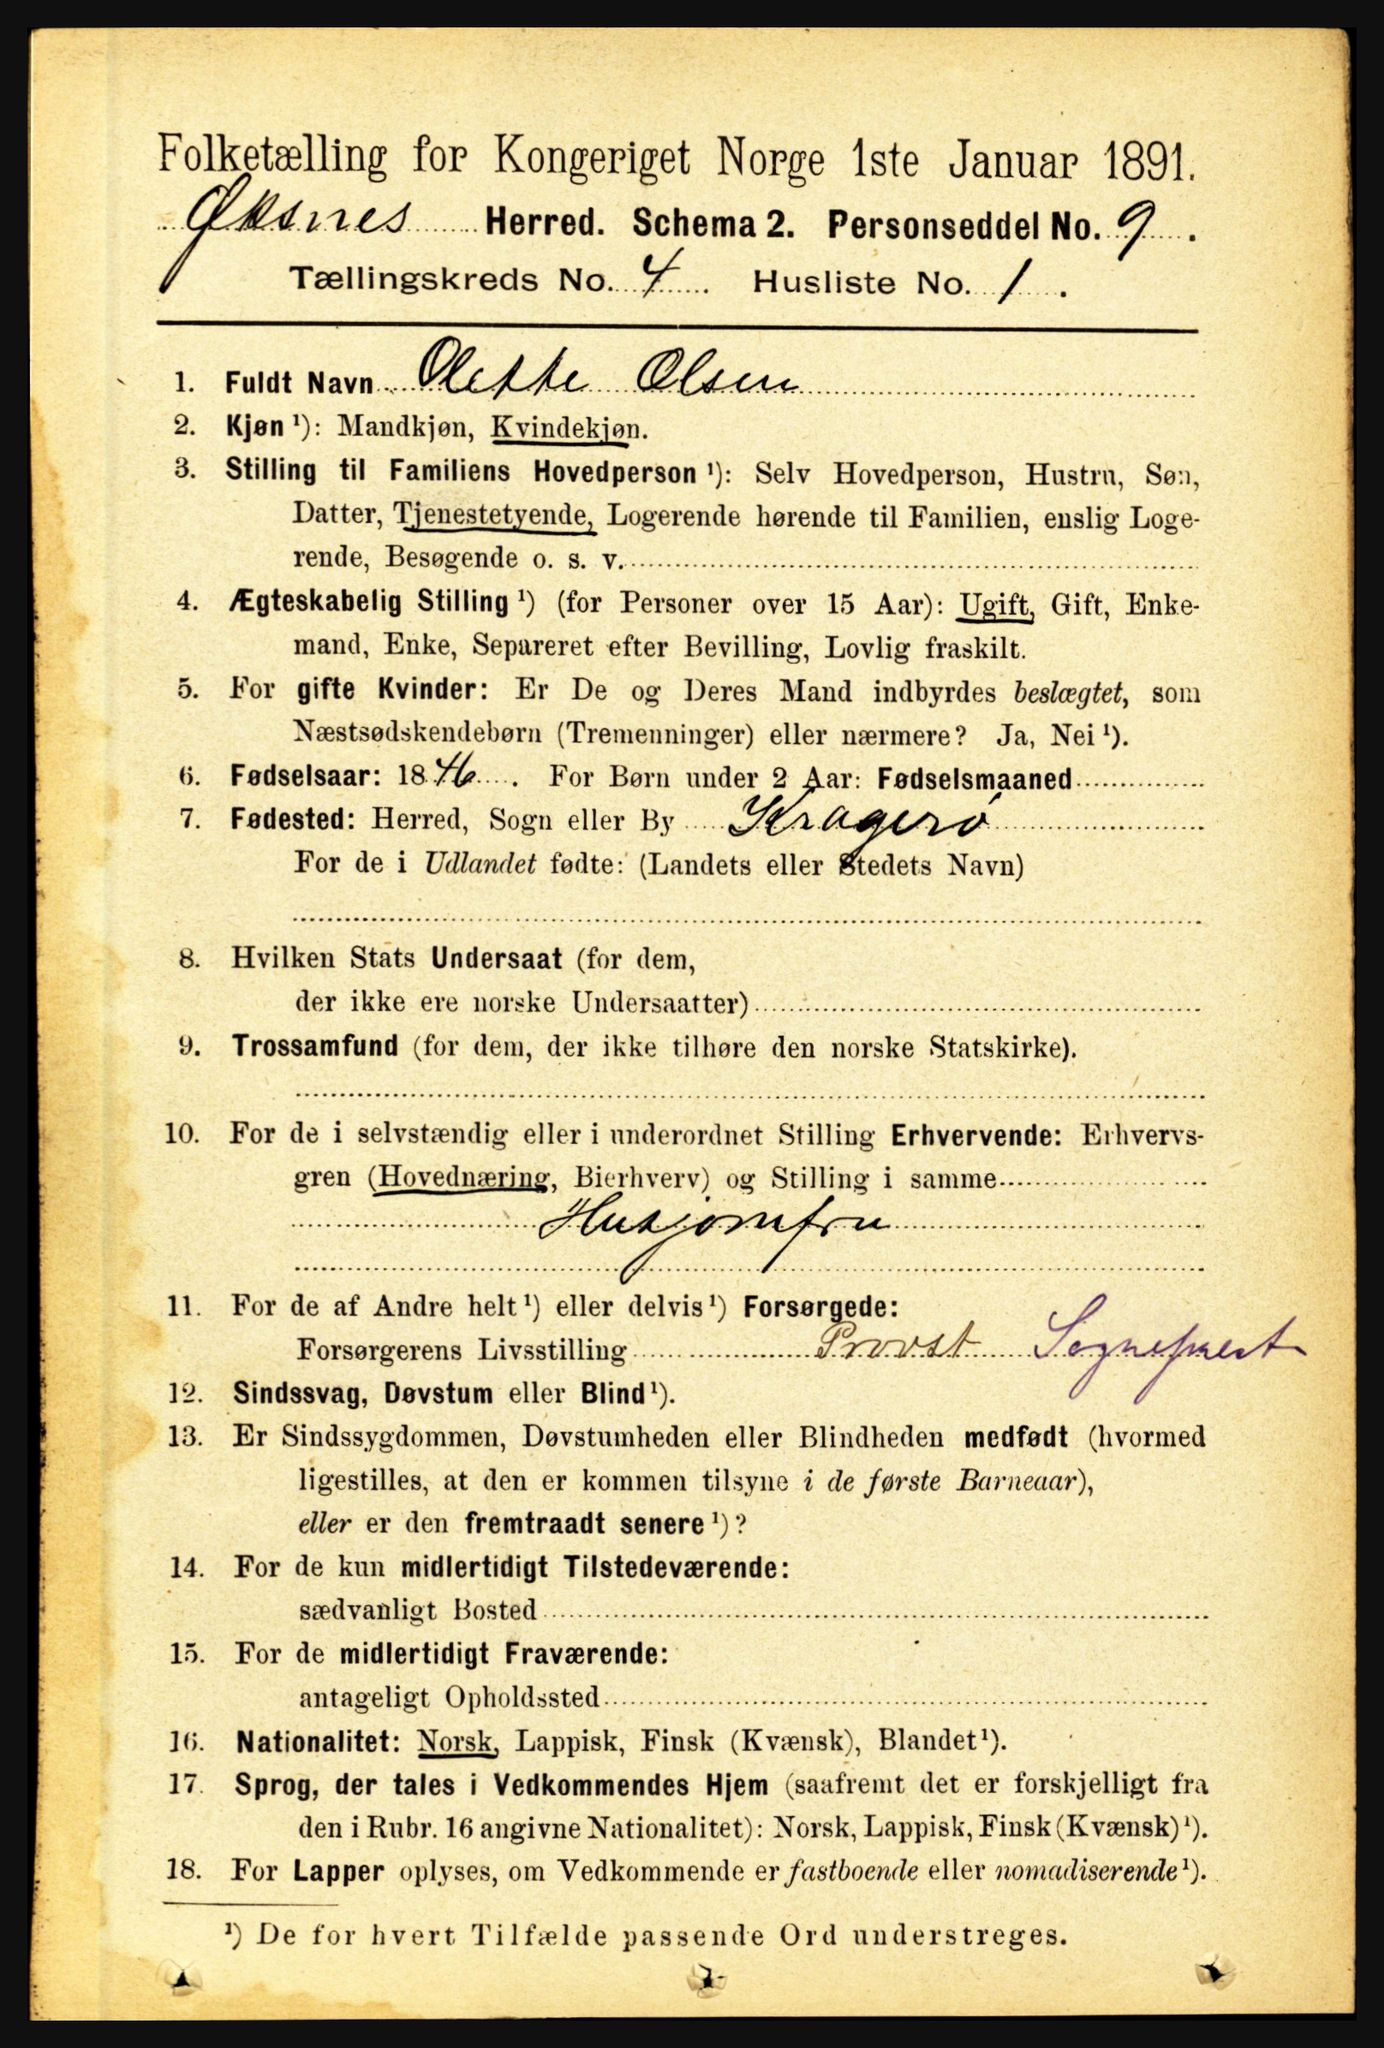 Folketælling for Kongeriget Norge 1ste Januar 1891.
Øksnes Herred. Schema 2. Personseddel No. 9.
Tællingskreds No. 4. Husliste No. 1.
1. Fuldt Navn Olette Olsen
2. Kjøn ¹): Mandkjøn, Kvindekjøn.
3. Stilling til Familiens Hovedperson ¹): Selv Hovedperson, Hustru, Søn,
Datter, Tjenestetyende, Logerende hørende til Familien, enslig Loge-
rende, Besøgende o. s. v.
4. Ægteskabelig Stilling ¹) (for Personer over 15 Aar): Ugift, Gift, Enke-
mand, Enke, Separeret efter Bevilling, Lovlig fraskilt.
5. For gifte Kvinder: Er De og Deres Mand indbyrdes beslægtet, som
Næstsødskendebørn (Tremenninger) eller nærmere? Ja, Nei ¹).
6. Fødselsaar: 1846. For Børn under 2 Aar: Fødselsmaaned
7. Fødested: Herred, Sogn eller By Kragerø
For de i Udlandet fødte: (Landets eller Stedets Navn)
8. Hvilken Stats Undersaat (for dem,
der ikke ere norske Undersaatter)
9. Trossamfund (for dem, der ikke tilhøre den norske Statskirke).
10. For de i selvstændig eller i underordnet Stilling Erhvervende: Erhvervs-
gren (Hovednæring, Bierhverv) og Stilling i samme
Husjomfru
11. For de af Andre helt ¹) eller delvis ¹) Forsørgede:
Forsørgerens Livsstilling Provst Sognepræst
12. Sindssvag, Døvstum eller Blind ¹).
13. Er Sindssygdommen, Døvstumheden eller Blindheden medfødt (hvormed
ligestilles, at den er kommen tilsyne i de første Barneaar),
eller er den fremtraadt senere ¹)?
14. For de kun midlertidigt Tilstedeværende:
sædvanligt Bosted
15. For de midlertidigt Fraværende:
antageligt Opholdssted
16. Nationalitet: Norsk, Lappisk, Finsk (Kvænsk), Blandet ¹).
17. Sprog, der tales i Vedkommendes Hjem (saafremt det er forskjelligt fra
den i Rubr. 16 angivne Nationalitet): Norsk, Lappisk, Finsk (Kvænsk) ¹).
18. For Lapper oplyses, om Vedkommende er fastboende eller nomadiserende ¹).
¹) De for hvert Tilfælde passende Ord understreges.